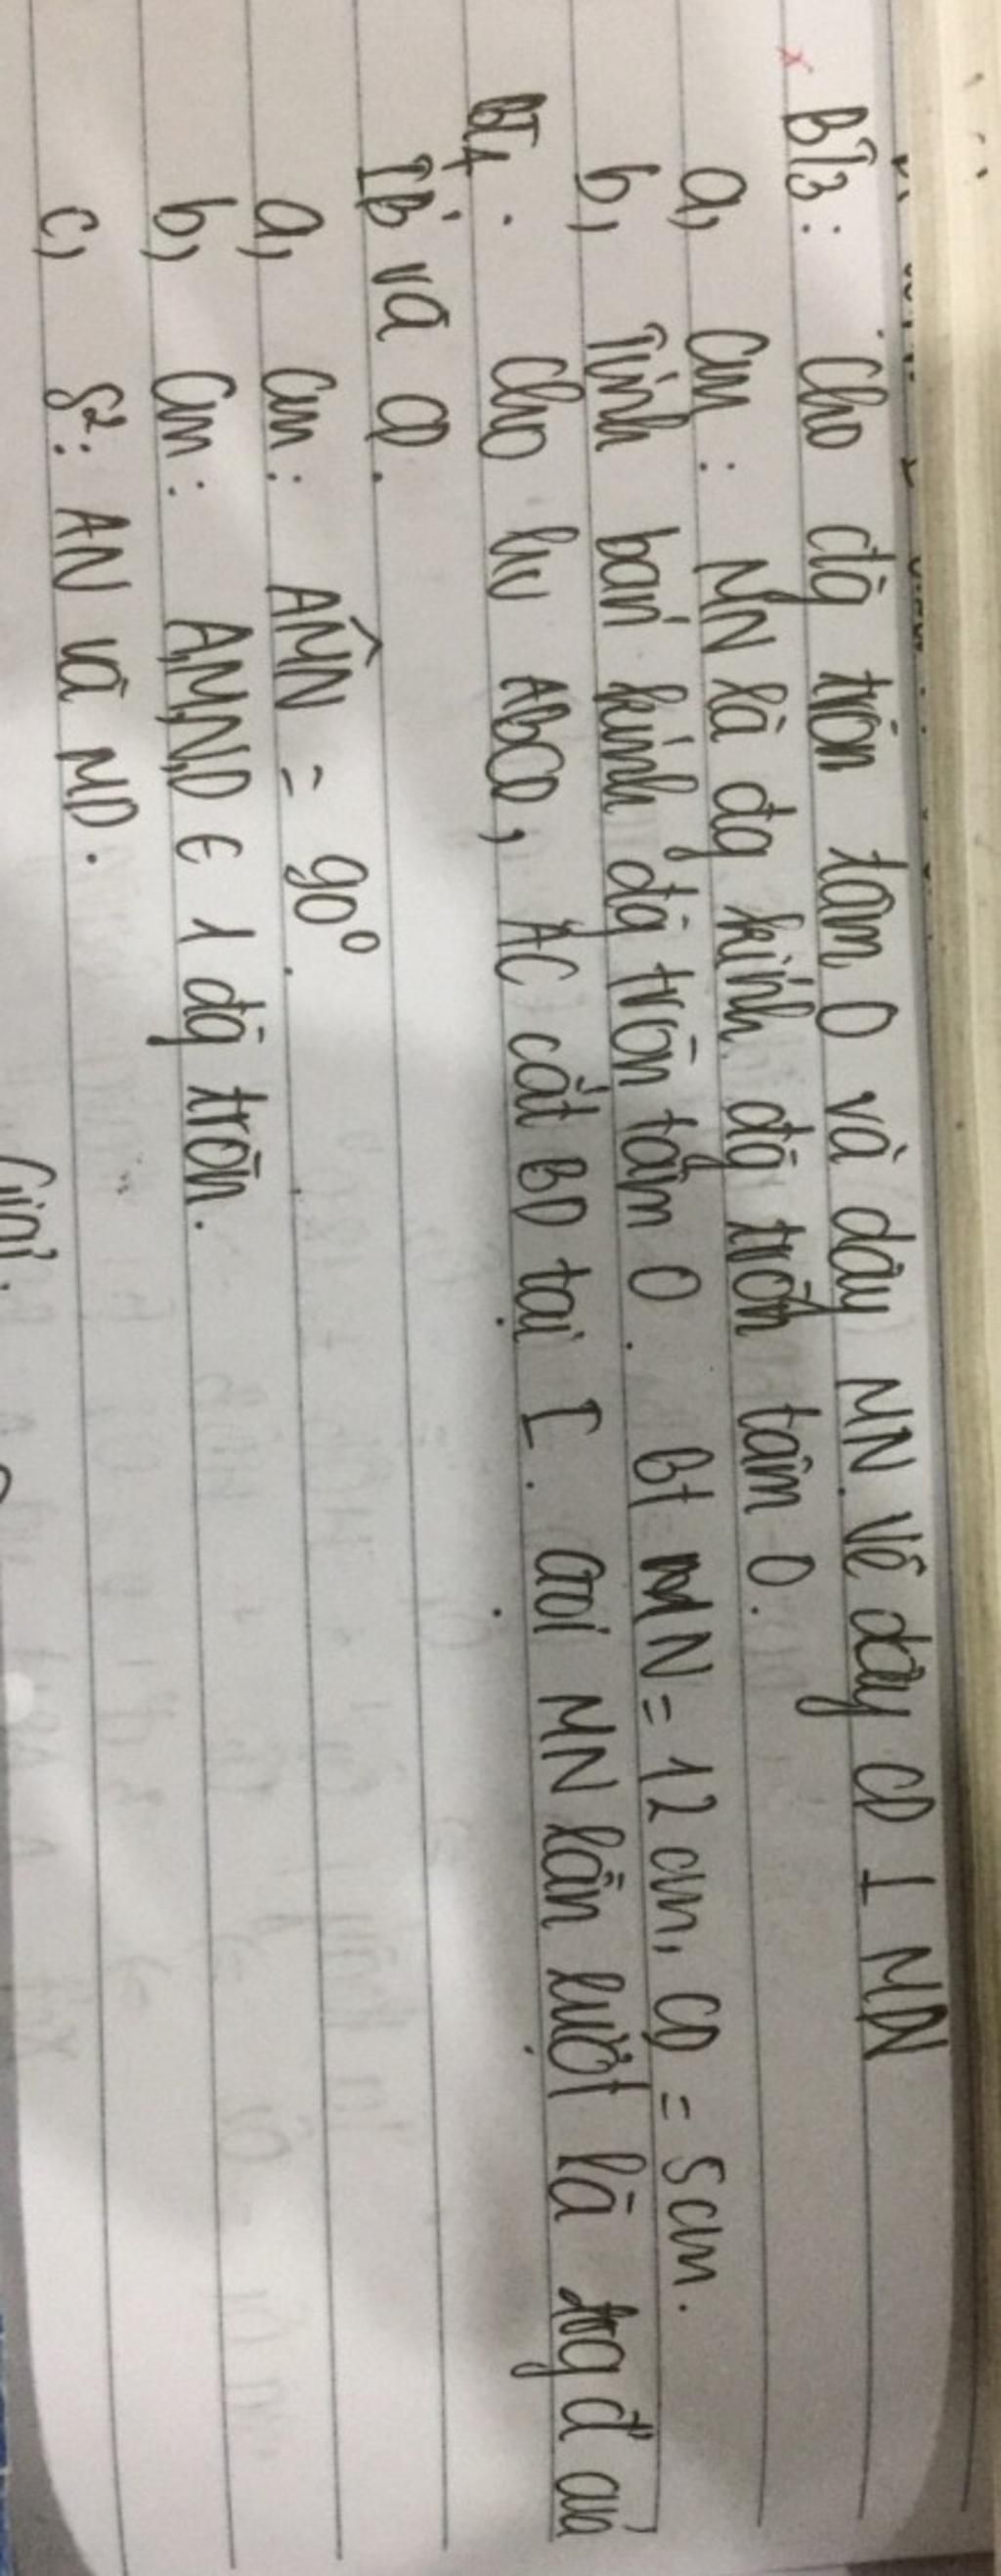 BT3: Cho đg tròn tâm O và dây MN. Vẽ dây CD ⊥ MN
a, Cm: MN là đg kính đg tròn tâm O.
b, Tính bán kính đg tròn tâm O. Bt MN = 12 cm, CD = 5cm.
BT4. Cho hv ABCD, AC cắt BD tại I. Gọi M,N lần lượt là trg đ' của
IB và CD.
a, Cm: AMN = 90⁰.
b, Cm: A,M,N,D ∈ 1 đg tròn.
c, S²: AN và MD.
Giải: